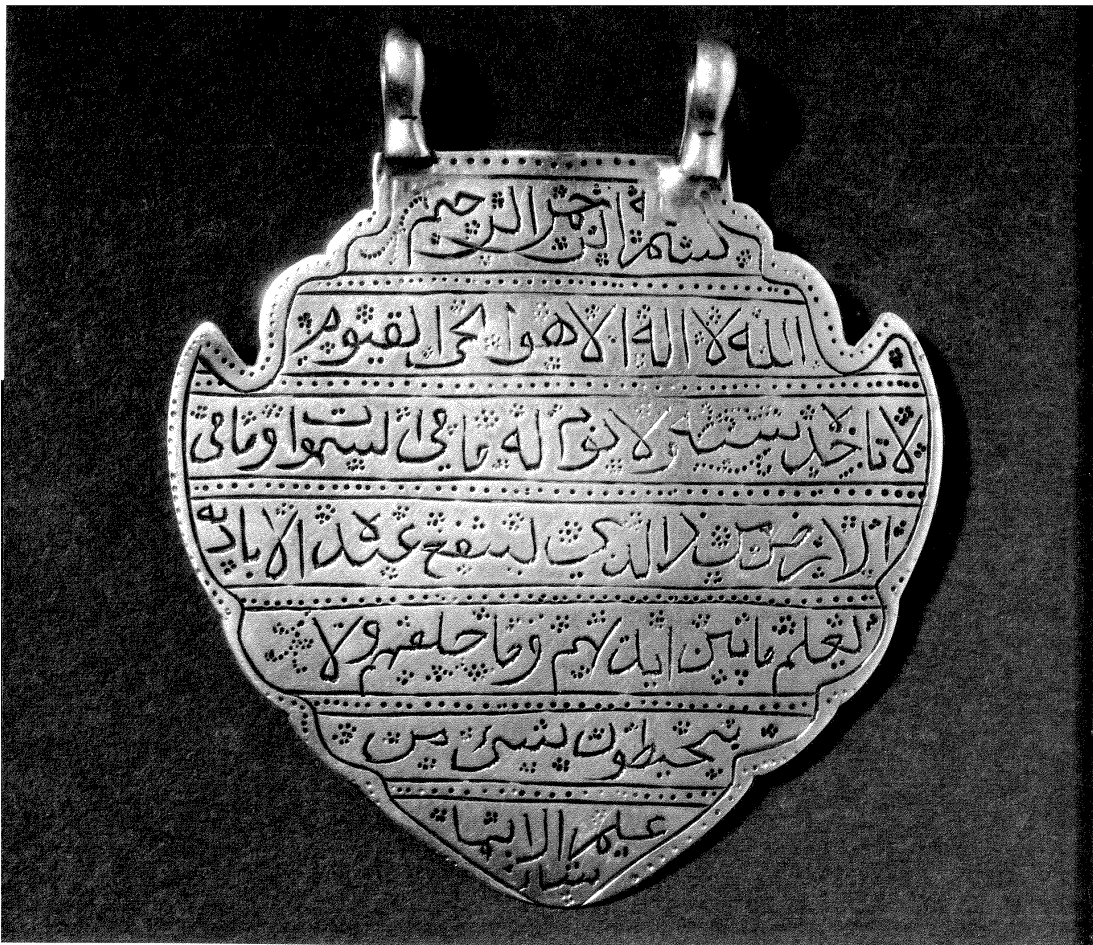 بسم الله الرحمن الرحيم
الله لا اله الا هو الحى القيوم
لا تاخذه سنته ولا نوم له ما في السموات وما في
الارض من ذا الذي يشفع عنده الا باذنه
يعلم ما بين ايديهم وما خلفهم ولا
يحيطون بشئ من
علمه الا بما
شاء